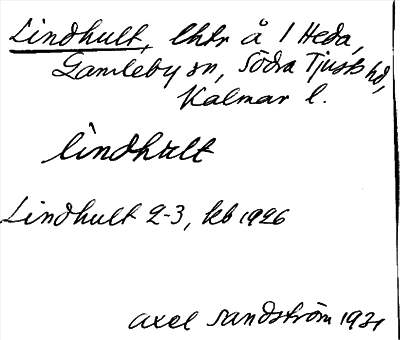 Lindhult, lht å 1 Heda,
Gamleby sn, Södra Tjusts hd,
Kalmar l.
lindhult
Lindhult 2-3, kb 1926
Axel Sandström 1931